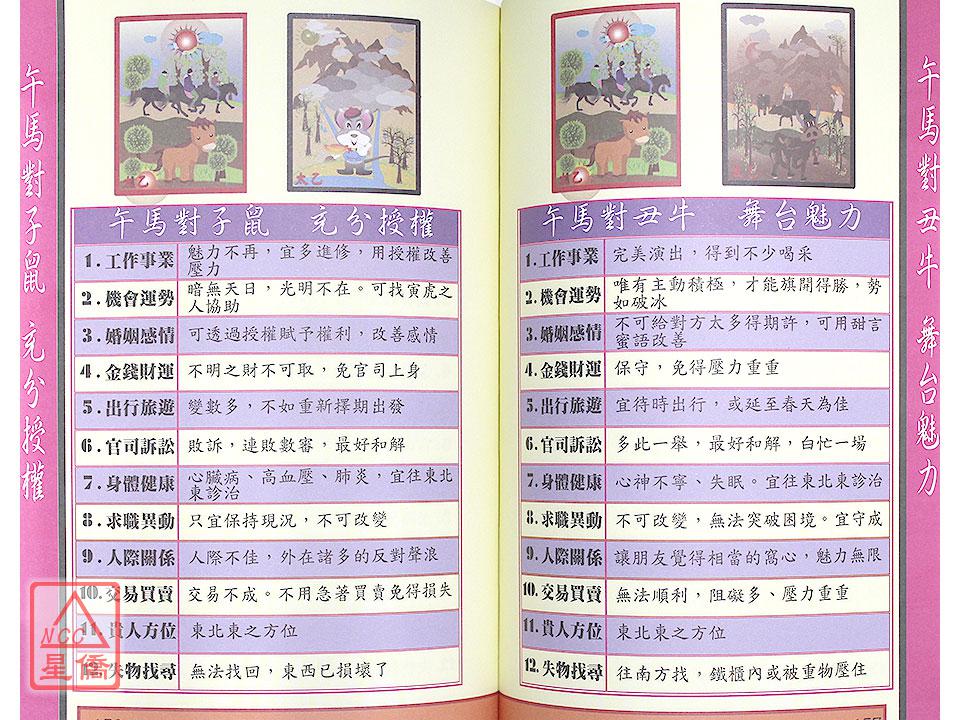 午馬對子鼠 充分授權
太乙
午馬對子鼠 充分授權
1.工作事業 魅力不再，宜多進修，用授權改善
壓力
2.機會運勢 暗無天日，光明不在。可找寅虎之
人協助
3.婚姻感情 可透過授權賦予權利，改善感情
4.金錢財運 不明之財不可取，免官司上身
5.出行旅遊 變數多，不如重新擇期出發
6.官司訴訟 敗訴，連敗數審，最好和解
7.身體健康 心臟病、高血壓、肺炎，宜往東北
東診治
8.求職異動 只宜保持現況，不可改變
9.人際關係 人際不佳，外在諸多的反對聲浪
10.交易買賣 交易不成。不用急著買賣免得損失
11.貴人方位 東北東之方位
12.失物找尋 無法找回，東西已損壞了
NCC
星僑
午馬對丑牛 舞台魅力
1.工作事業 完美演出，得到不少喝采
2.機會運勢 唯有主動積極，才能旗開得勝，勢
如破冰
3.婚姻感情 不可給對方太多得期許，可用甜言
蜜語改善
4.金錢財運 保守，免得壓力重重
5.出行旅遊 宜待時出行，或延至春天為佳
6.官司訴訟 多此一舉，最好和解，白忙一場
7.身體健康 心神不寧、失眠。宜往東北東診治
8.求職異動 不可改變，無法突破困境。宜守成
9.人際關係 讓朋友覺得相當的窩心，魅力無限
10.交易買賣 無法順利，阻礙多、壓力重重
11.貴人方位 東北東之方位
12.失物找尋 往南方找，鐵櫃內或被重物壓住
午馬對丑牛 舞台魅力